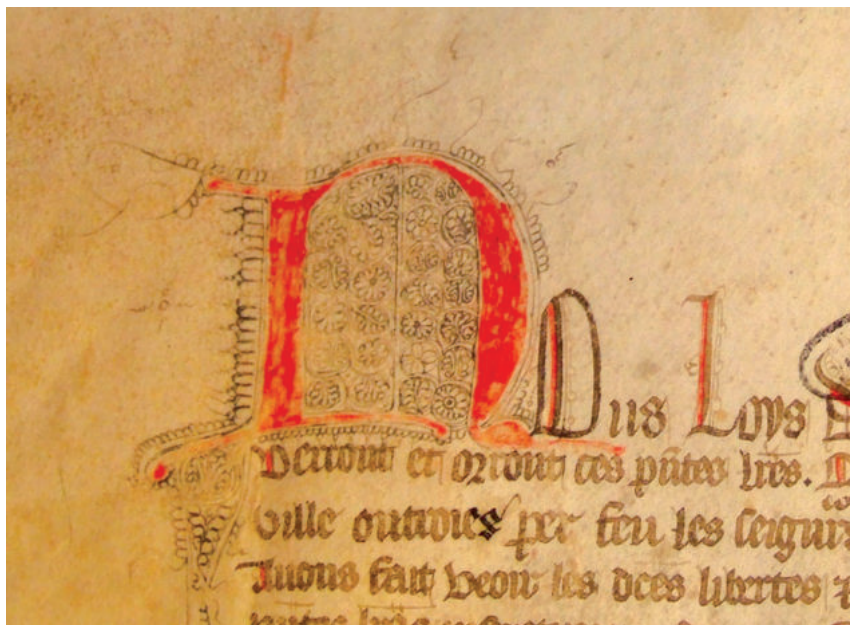 NOus Loys
verront et orront ces pntes lres.
ville outroies per feu les seigurs
Auons fait veoir les dces libertes